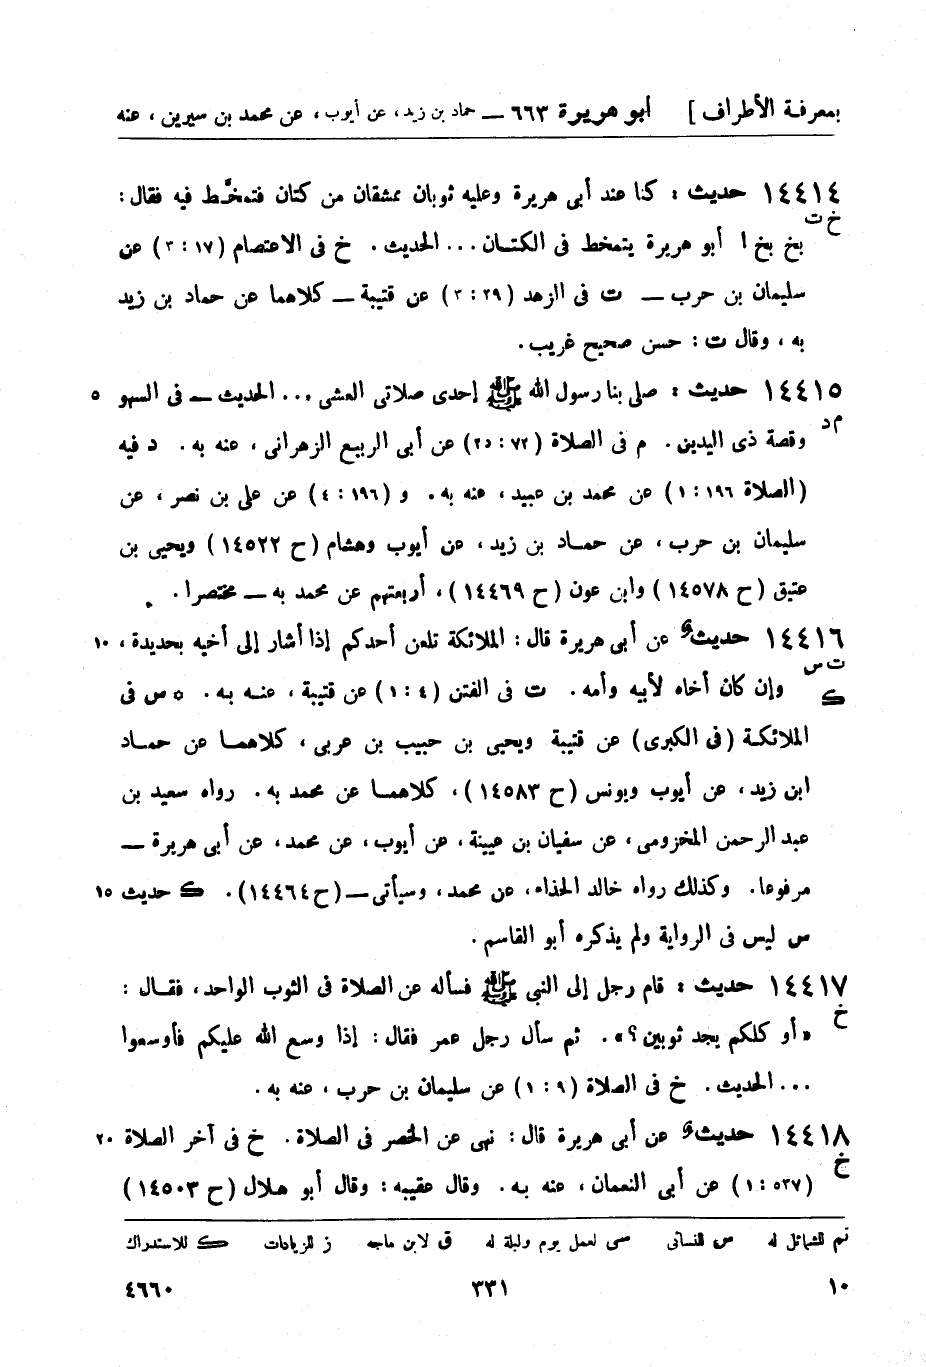 بمعرفة الأطراف ] أبو هريرة ٦٦٣ — حماد بن زيد، عن أيوب، عن محمد بن سيرين، عنه
١٤٤١٤ حديث : كنا عند أبى هريرة وعليه ثوبان ممشقان من كتان فتمخَّط فيه فقال :
خ ت
بخ بخ ! أبو هريرة يتمخط فى الكتـان ... الحديث . خ فى الاعتصام (١٧ : ٢) عن
سليمان بن حرب — ت فى الزهد (٢٩ : ٣) عن قتيبة — كلاهما عن حماد بن زيد
به ، وقال ت : حسن صحيح غريب .
١٤٤١٥ حديث : صلى بنا رسول الله ﷺ إحدى صلاتى العشى ... الحديث — فى السهو ٥
م د
وقصة ذى اليدين . م فى الصلاة (٧٢ : ٢٥) عن أبى الربيع الزهرانى ، عنه به . د فيه
(الصلاة ١٩٦ : ١) عن محمد بن عبيد ، عنه به . و (١٩٦ : ٤) عن على بن نصر ، عن
سليمان بن حرب ، عن حمـاد بن زيد ، عن أيوب وهشام (ح ١٤٥٢٢) ويحيى بن
عتيق (ح ١٤٥٧٨) وابن عون (ح ١٤٤٦٩) ، أربعتهم عن محمد به — مختصرا .
١٤٤١٦ حديث و عن أبى هريرة قال : الملائكة تلعن أحدكم إذا أشار إلى أخيه بحديدة ، ١٠
ت س
ك
وإن كان أخاه لأبيه وأمه . ت فى الفتن (٤ : ١) عن قتيبة ، عنـه بـه . * س فى
الملائكـة (فى الكبرى) عن قتيبة ويحيى بن حبيب بن عربى ، كلاهمـا عن حمـاد
ابن زيد ، عن أيوب ويونس (ح ١٤٥٨٣) ، كلاهمـا عن محمد به . رواه سعيد بن
عبد الرحمن المخزومى ، عن سفيان بن عيينة ، عن أيوب ، عن محمد ، عن أبى هريرة —
مرفوعا . وكذلك رواه خالد الحذاء ، عن محمد ، وسيأتى — (ح ١٤٤٦٤) . ك حديث ١٥
س ليس فى الرواية ولم يذكره أبو القاسم .
١٤٤١٧ حديث : قام رجل إلى النبى ﷺ فسأله عن الصلاة فى الثوب الواحد ، فقـال :
خ
« أو كلكم يجد ثوبين ؟ » . ثم سأل رجل عمر فقال : إذا وسع الله عليكم فأوسعوا
... الحديث . خ فى الصلاة (٩ : ١) عن سليمان بن حرب ، عنه به .
١٤٤١٨ حديث و عن أبى هريرة قال : نهى عن الخصر فى الصلاة . خ فى آخر الصلاة ٢٠
خ
(٥٣٧ : ١) عن أبى النعمان ، عنه بـه . وقال عقيبه : وقال أبو هـلال (ح ١٤٥٠٣)
تم للشمائل له س للنسائى سى لعمل يوم وليلة له ق لابن ماجه ز للزيادات ك للاستدراك
١٠ ٣٣١ ٤٦٦٠